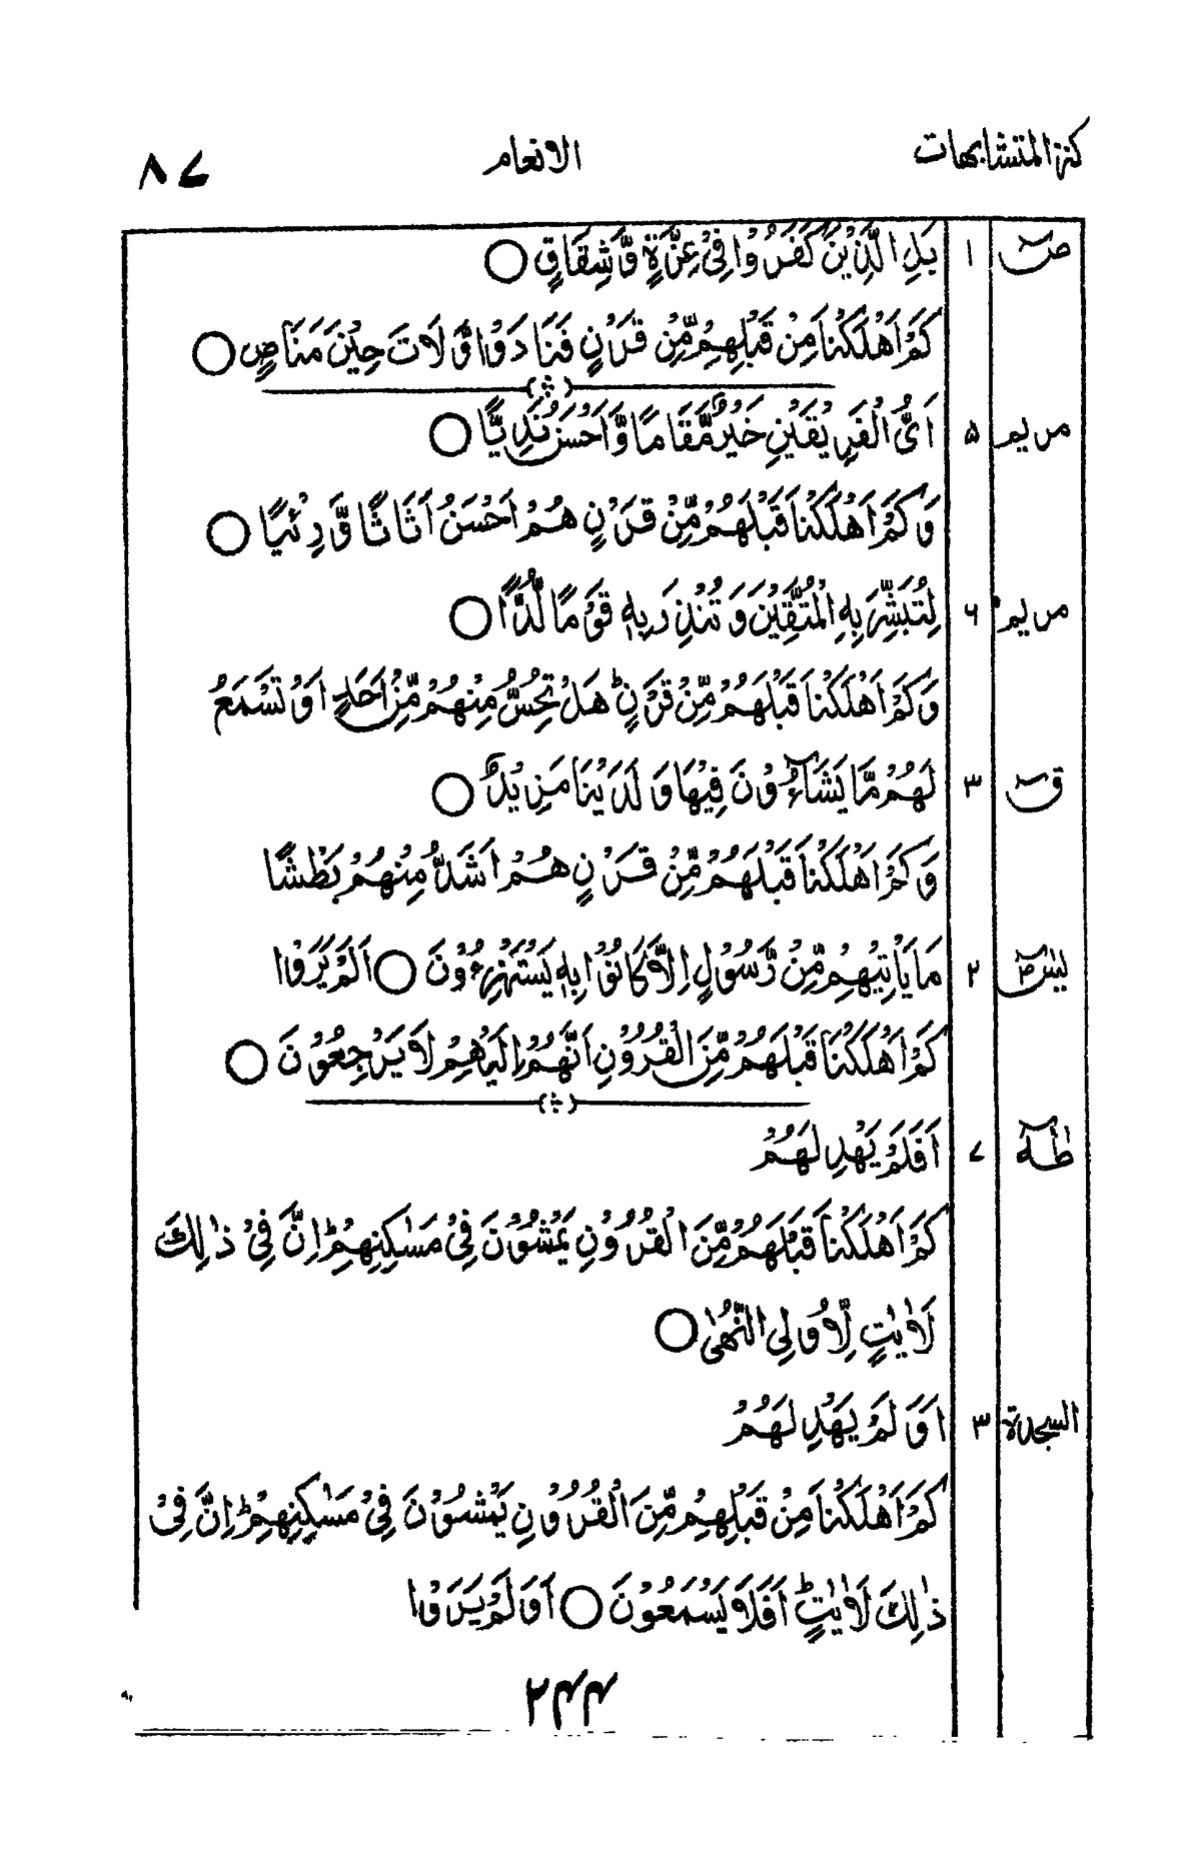 كنز المتشابهات الانعام ۸۷
صٓ ۱ بَلِ الَّذِيْنَ كَفَرُوْا فِيْ عِزَّةٍ وَّشِقَاقٍ ○
كَمْ اَهْلَكْنَا مِنْ قَبْلِهِمْ مِّنْ قَرْنٍ فَنَادَوْا وَّلَاتَ حِيْنَ مَنَاصٍ ○
مريم ۵ اَيُّ الْفَرِيْقَيْنِ خَيْرٌ مَّقَامًا وَّاَحْسَنُ نَدِيًّا ○
وَكَمْ اَهْلَكْنَا قَبْلَهُمْ مِّنْ قَرْنٍ هُمْ اَحْسَنُ اَثَاثًا وَّرِئْيًا ○
مريم ۶ لِتُبَشِّرَ بِهِ الْمُتَّقِيْنَ وَتُنْذِرَ بِهٖ قَوْمًا لُّدًّا ○
وَكَمْ اَهْلَكْنَا قَبْلَهُمْ مِّنْ قَرْنٍ ؕ هَلْ تُحِسُّ مِنْهُمْ مِّنْ اَحَدٍ اَوْ تَسْمَعُ
قٓ ۳ لَهُمْ مَّا يَشَآءُوْنَ فِيْهَا وَلَدَيْنَا مَزِيْدٌ ○
وَكَمْ اَهْلَكْنَا قَبْلَهُمْ مِّنْ قَرْنٍ هُمْ اَشَدُّ مِنْهُمْ بَطْشًا
يٰسٓ ۲ مَا يَاْتِيْهِمْ مِّنْ رَّسُوْلٍ اِلَّا كَانُوْا بِهٖ يَسْتَهْزِءُوْنَ ○ اَلَمْ يَرَوْا
كَمْ اَهْلَكْنَا قَبْلَهُمْ مِّنَ الْقُرُوْنِ اَنَّهُمْ اِلَيْهِمْ لَا يَرْجِعُوْنَ ○
طٰهٰ ۷ اَفَلَمْ يَهْدِ لَهُمْ
كَمْ اَهْلَكْنَا قَبْلَهُمْ مِّنَ الْقُرُوْنِ يَمْشُوْنَ فِيْ مَسٰكِنِهِمْ ؕ اِنَّ فِيْ ذٰلِكَ
لَاٰيٰتٍ لِّاُولِي النُّهٰى ○
السجدة ۳ اَوَلَمْ يَهْدِ لَهُمْ
كَمْ اَهْلَكْنَا مِنْ قَبْلِهِمْ مِّنَ الْقُرُوْنِ يَمْشُوْنَ فِيْ مَسٰكِنِهِمْ ؕ اِنَّ فِيْ
ذٰلِكَ لَاٰيٰتٍ ؕ اَفَلَا يَسْمَعُوْنَ ○ اَوَلَمْ يَرَوْا